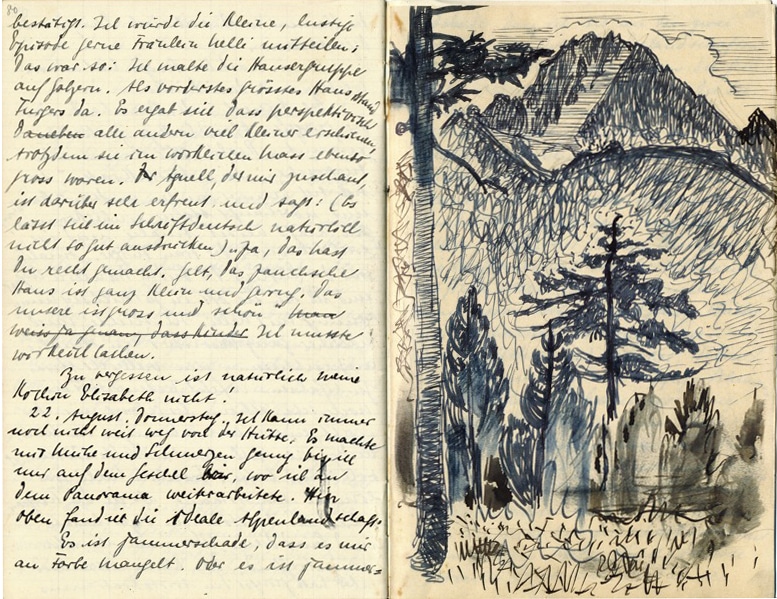 80
bestätigt. Ich würde die kleine, lustige
Episode gerne Fräulein Nelli mitteilen:
Das war so: Ich malte die Häusergruppe
auf Golzern. Als vorderstes grösstes Haus stand
Furgers da. Es ergab sich dass perspektivisch
daneben alle andern viel kleiner erschienen,
trotzdem sie im wirklichen Mass ebenso
gross waren. Der, der mir zuschaut,
ist darüber sehr erfreut und sagt: (Es
lässt sich im Schriftdeutsch natürlich
nicht so gut ausdrücken) „Ja, das hast
Du recht gemacht, gelt, das
Haus ist ganz klein und gering. Das
unsere ist gross und schön. Man
weiss ja genau, dass Kinder Ich musste
wirklich lachen.
Zu vergessen ist natürlich meine
Köchin Elisabeth nicht!
22. August, Donnerstag. Ich kann immer
noch nicht weit weg von der Hütte. Es machte
mir Mühe und Schmerzen genug bis ich
nur auf dem Gschtell, wo ich an
dem Panorama weiterarbeitete. Hier
oben fand ich die ideale Alpenlandschaft.
Es ist jammerschade, dass es mir
an Farbe mangelt. Oder es ist jammer=